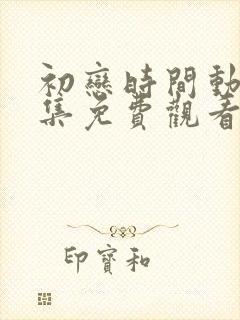 初戀時間動
集免費觀看
印寶和